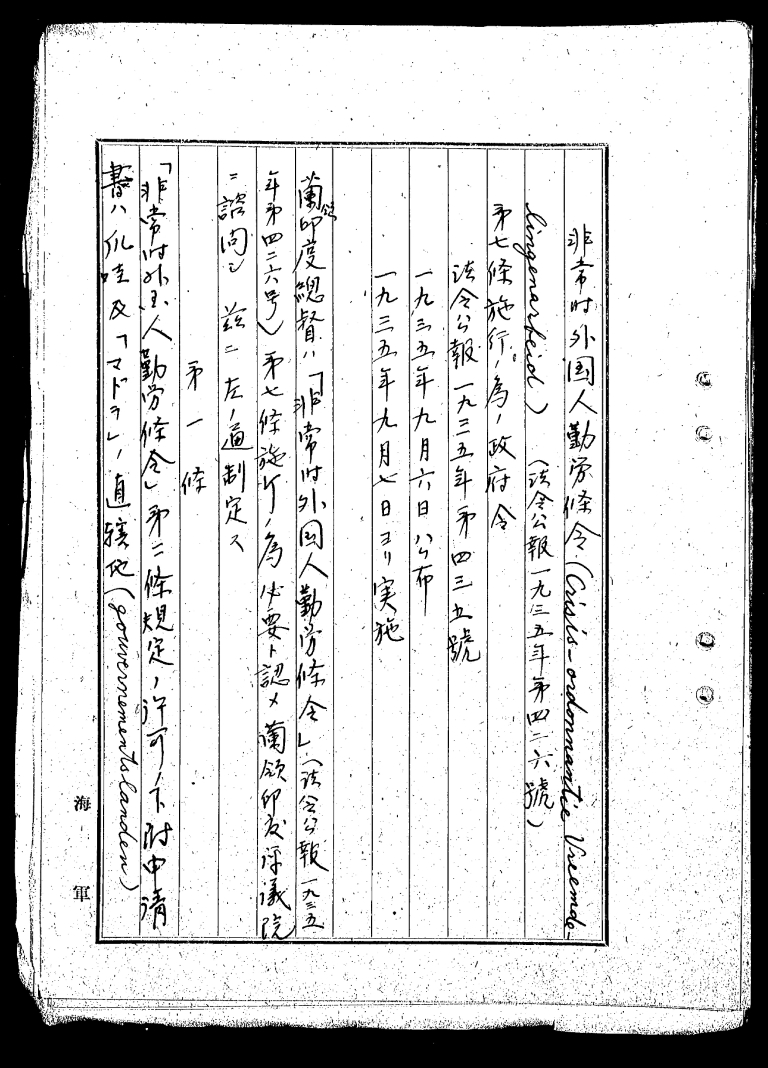 非常时外国人勤労條令(Crisis-ordonnantie Vreemde-
lingenarbeid) (法令公報一九三五年第四二六號)
第七條施行ノ為ノ政府令
法令公報一九三五年第四三五號
一九三五年九月六日公布
一九三五年九月七日ヨリ実施
蘭領印度總督ハ「非常时外国人勤労條令」(法令公報一九三五
年第四二六号)第七條施行ノ為必要ト認メ蘭領印度評議院
ニ諮問シ茲ニ左ノ通制定ス
第一條
「非常时外国人勤労條令」第二條規定ノ許可ノ下附申請
書ハ爪哇及「マドラ」ノ直轄地(gouvernementslanden)
海軍